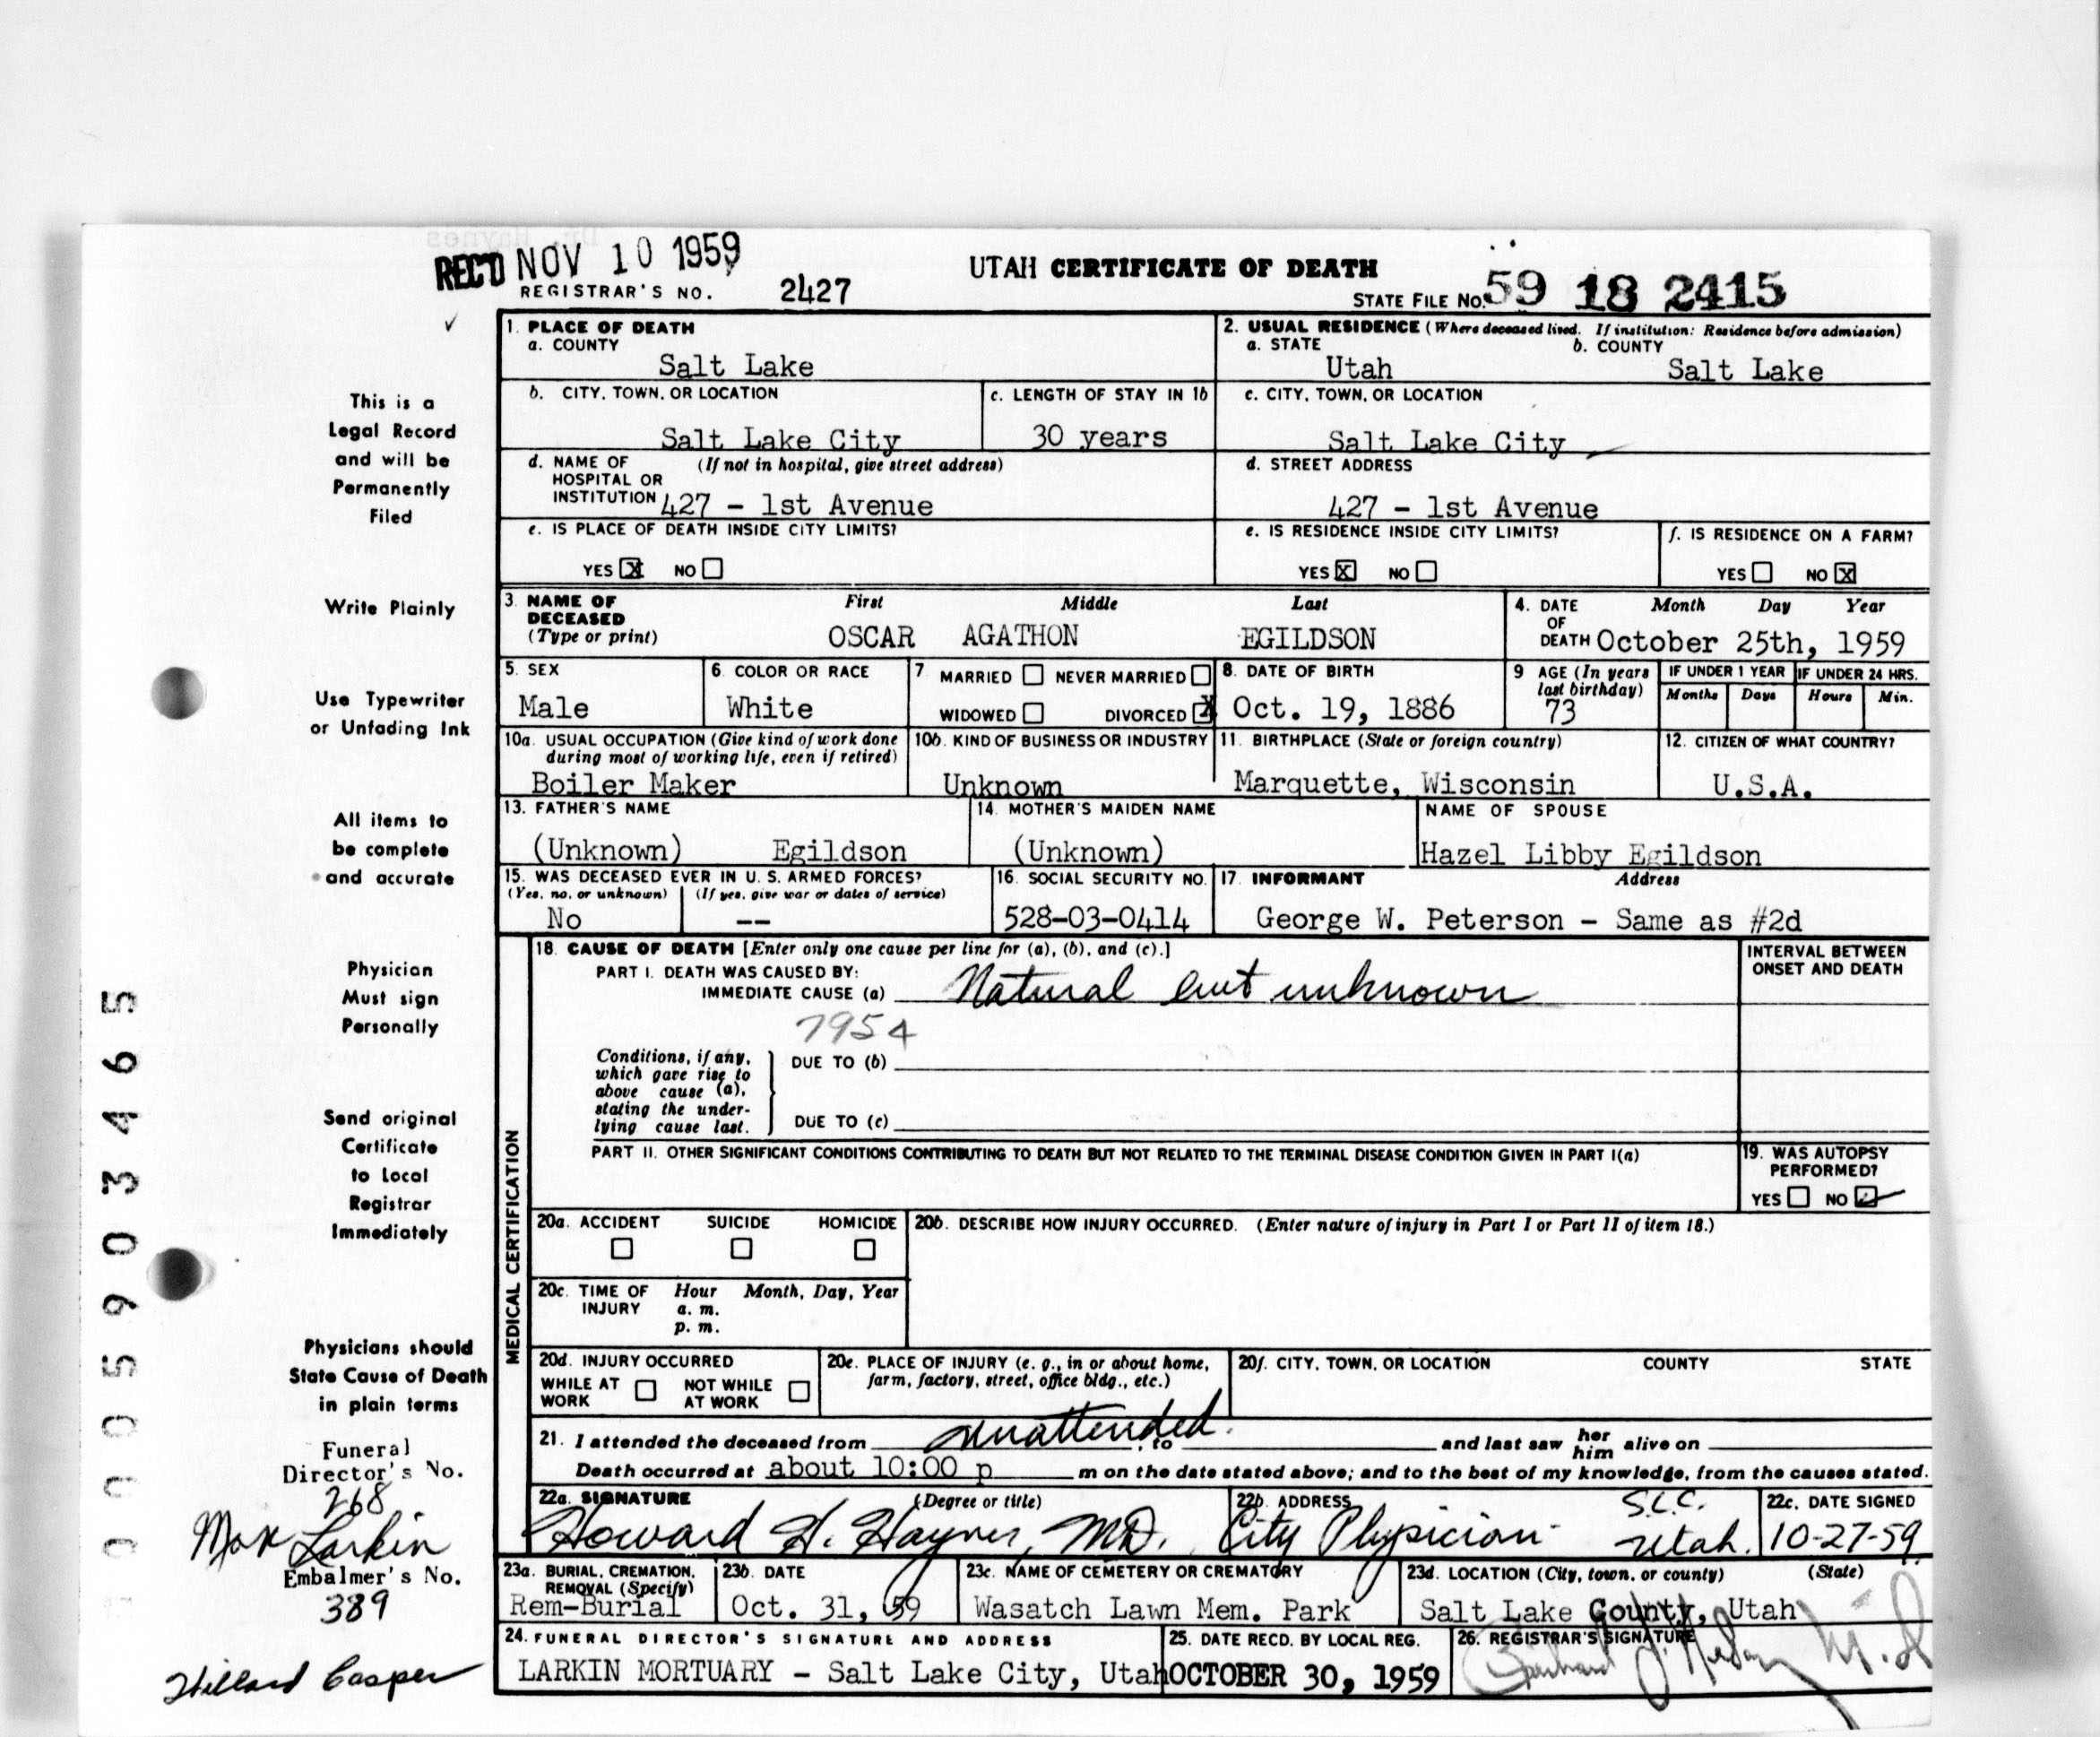 REC'D NOV 10 1959
REGISTRAR'S NO. 2427
UTAH CERTIFICATE OF DEATH
STATE FILE NO. 59 18 2415
1. PLACE OF DEATH
a. COUNTY
Salt Lake
2. USUAL RESIDENCE (Where deceased lived. If institution: Residence before admission)
a. STATE b. COUNTY
Utah Salt Lake
b. CITY, TOWN, OR LOCATION
Salt Lake City
c. LENGTH OF STAY IN 1b
30 years
c. CITY, TOWN, OR LOCATION
Salt Lake City
d. NAME OF HOSPITAL OR INSTITUTION (If not in hospital, give street address)
427 - 1st Avenue
d. STREET ADDRESS
427 - 1st Avenue
e. IS PLACE OF DEATH INSIDE CITY LIMITS?
YES X NO
e. IS RESIDENCE INSIDE CITY LIMITS?
YES X NO
f. IS RESIDENCE ON A FARM?
YES NO X
3. NAME OF DECEASED (Type or print)
First Middle Last
OSCAR AGATHON EGILDSON
4. DATE OF DEATH Month Day Year
October 25th, 1959
5. SEX
Male
6. COLOR OR RACE
White
7. MARRIED NEVER MARRIED
WIDOWED DIVORCED X
8. DATE OF BIRTH
Oct. 19, 1886
9 AGE (In years last birthday)
73
IF UNDER 1 YEAR
Months Days
IF UNDER 24 HRS.
Hours Min.
10a. USUAL OCCUPATION (Give kind of work done during most of working life, even if retired)
Boiler Maker
10b. KIND OF BUSINESS OR INDUSTRY
Unknown
11. BIRTHPLACE (State or foreign country)
Marquette, Wisconsin
12. CITIZEN OF WHAT COUNTRY?
U.S.A.
13. FATHER'S NAME
(Unknown) Egildson
14. MOTHER'S MAIDEN NAME
(Unknown)
NAME OF SPOUSE
Hazel Libby Egildson
15. WAS DECEASED EVER IN U. S. ARMED FORCES?
(Yes, no, or unknown) (If yes, give war or dates of service)
No --
16. SOCIAL SECURITY NO.
528-03-0414
17. INFORMANT Address
George W. Peterson - Same as #2d
MEDICAL CERTIFICATION
18. CAUSE OF DEATH [Enter only one cause per line for (a), (b), and (c).]
PART I. DEATH WAS CAUSED BY:
IMMEDIATE CAUSE (a) Natural but unknown
7954
Conditions, if any, which gave rise to above cause (a), stating the underlying cause last.
DUE TO (b)
DUE TO (c)
INTERVAL BETWEEN ONSET AND DEATH
PART II. OTHER SIGNIFICANT CONDITIONS CONTRIBUTING TO DEATH BUT NOT RELATED TO THE TERMINAL DISEASE CONDITION GIVEN IN PART I(a)
19. WAS AUTOPSY PERFORMED?
YES NO
20a. ACCIDENT SUICIDE HOMICIDE
20b. DESCRIBE HOW INJURY OCCURRED. (Enter nature of injury in Part I or Part II of item 18.)
20c. TIME OF INJURY Hour Month, Day, Year
a. m.
p. m.
20d. INJURY OCCURRED
WHILE AT WORK NOT WHILE AT WORK
20e. PLACE OF INJURY (e. g., in or about home, farm, factory, street, office bldg., etc.)
20f. CITY, TOWN, OR LOCATION COUNTY STATE
21. I attended the deceased from unattended, to and last saw her him alive on
Death occurred at about 10:00 p m on the date stated above; and to the best of my knowledge, from the causes stated.
22a. SIGNATURE (Degree or title)
Howard H. Haynes, MD.
22b. ADDRESS
City Physician S.L.C. Utah.
22c. DATE SIGNED
10-27-59
23a. BURIAL, CREMATION, REMOVAL (Specify)
Rem-Burial
23b. DATE
Oct. 31, 59
23c. NAME OF CEMETERY OR CREMATORY
Wasatch Lawn Mem. Park
23d. LOCATION (City, town, or county) (State)
Salt Lake County, Utah
24. FUNERAL DIRECTOR'S SIGNATURE AND ADDRESS
LARKIN MORTUARY - Salt Lake City, Utah
25. DATE RECD. BY LOCAL REG.
OCTOBER 30, 1959
26. REGISTRAR'S SIGNATURE
This is a
Legal Record
and will be
Permanently
Filed
Write Plainly
Use Typewriter
or Unfading Ink
All items to
be complete
and accurate
Physician
Must sign
Personally
Send original
Certificate
to Local
Registrar
Immediately
Physicians should
State Cause of Death
in plain terms
Funeral
Director's No.
268
Max Larkin
Embalmer's No.
389
Hillard Casper
005903465